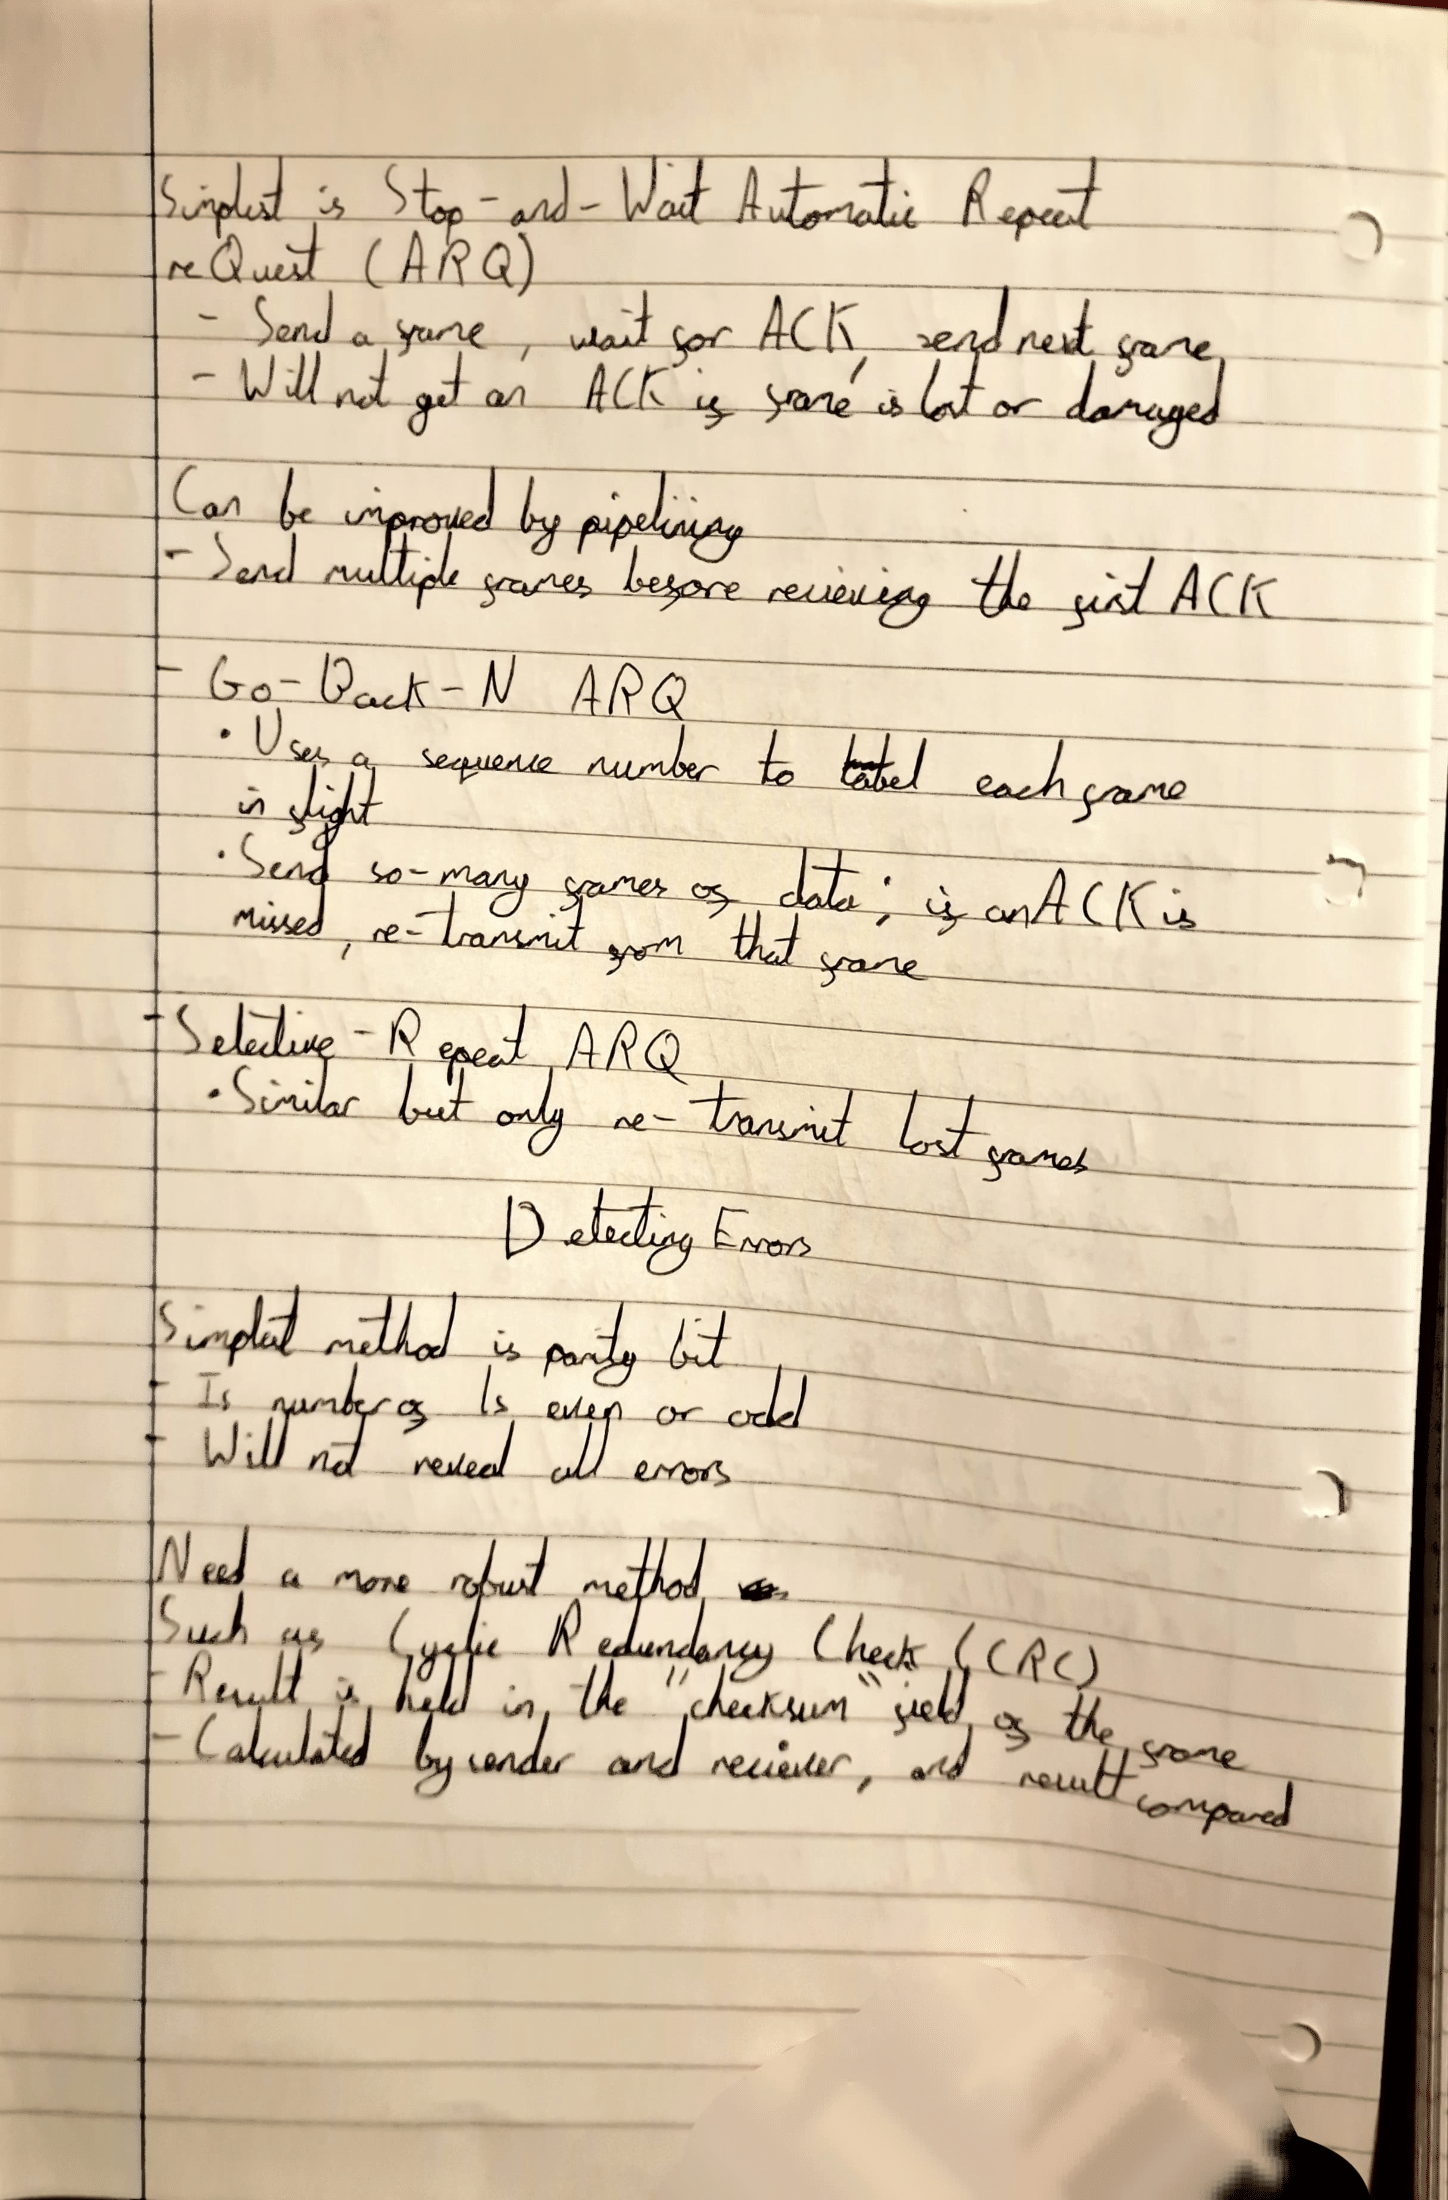 Simplest is Stop-and-Wait Automatic Repeat
reQuest (ARQ)
- Send a frame, wait for ACK, send next frame
- Will not get an ACK if frame is lost or damaged
Can be improved by pipelining
- Send multiple frames before recieving the first ACK
- Go-Back-N ARQ
• Uses a sequence number to label each frame
in flight
• Send so-many frames of data; if an ACK is
missed, re-transmit from that frame
- Selective-Repeat ARQ
• Similar but only re-transmit lost frames
Detecting Errors
Simplest method is parity bit
- Is number of 1s even or odd
- Will not reveal all errors
Need a more robust method
Such as Cyclic Redundancy Check (CRC)
- Result is held in the "checksum" field of the frame
- Calculated by sender and reciever, and result compared